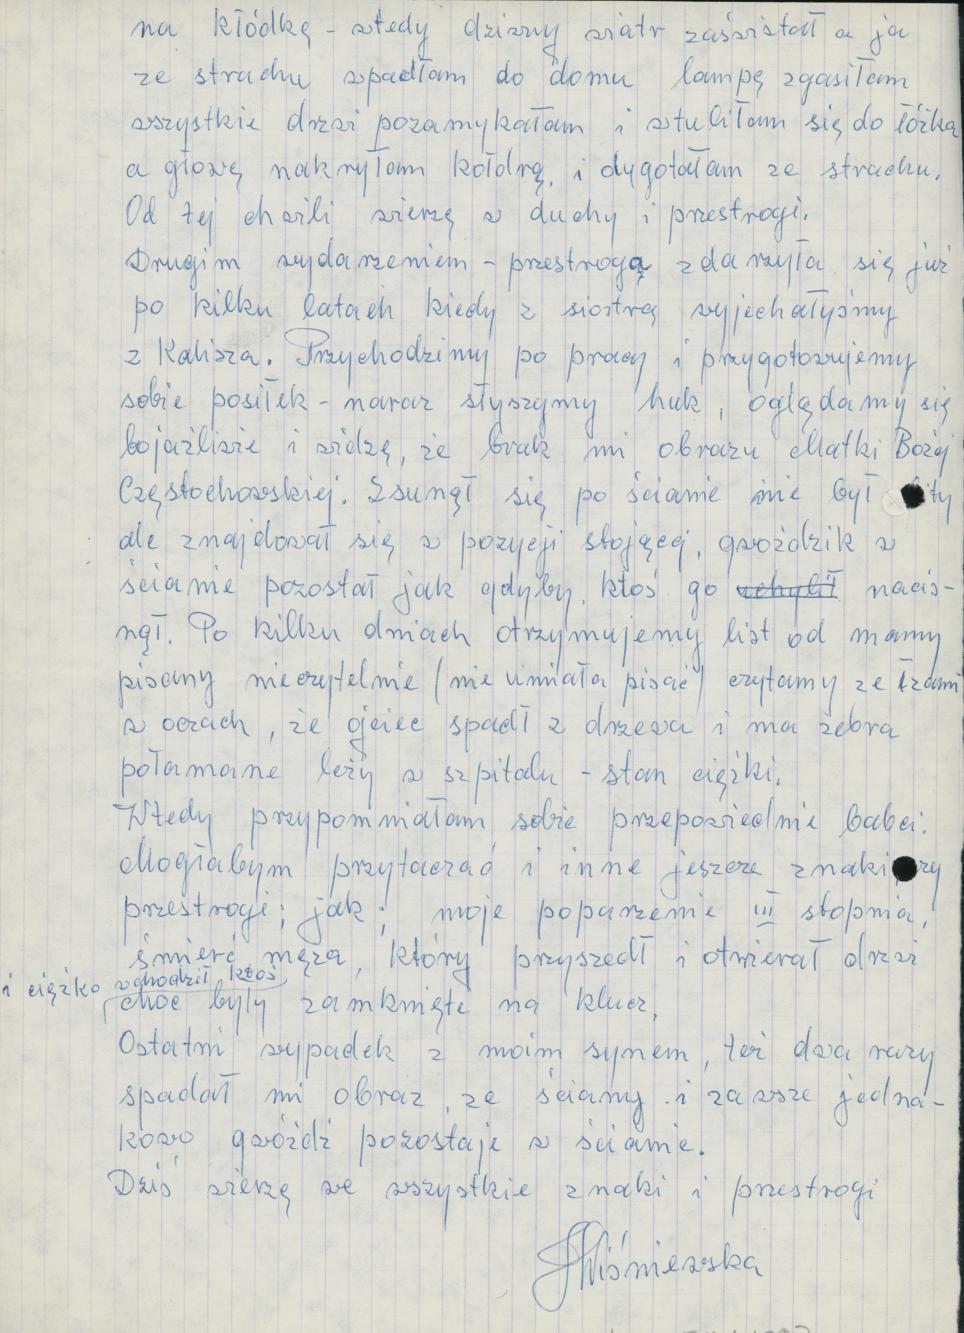 na kłódkę - wtedy dziwny wiatr zaświstał a ja
ze strachu wpadłam do domu lampę zgasiłam
wszystkie drzwi pozamykałam i wtuliłam się do łóżka
a głowę nakryłam kołdrą, i dygotałam ze strachu.
Od tej chwili wierzę w duchy i przestrogi.
Drugim wydarzeniem - przestrogą zdarzyła się już
po kilku latach kiedy z siostrą wyjechałyśmy
z Kalisza. Przychodzimy po pracy i przygotowujemy
sobie posiłek - naraz słyszymy huk, oglądamy się
bojaźliwie i widzę, że brak mi obrazu Matki Bożej
Częstochowskiej. Zsunął się po ścianie nie był
ale znajdował się w pozycji stojącej, gwoździk w
ścianie pozostał jak gdyby, ktoś go uchylił nacis-
nął. Po kilku dniach otrzymujemy list od mamy
pisany nieczytelnie (nie umiała pisać) czytamy ze łzami
w oczach, że ojciec spadł z drzewa i ma żebra
połamane leży w szpitalu - stan ciężki.
Wtedy przypomniałam sobie przepowiednie babci.
Mogłabym przytaczać i inne jeszcze znaki
przestrogi; jak; moje poparzenie III stopnia,
śmierć męża, który przyszedł i otwierał drzwi
i ciężko wchodził ktoś
choć były zamknięte na klucz.
Ostatni wypadek z moim synem, też dwa razy
spadał mi obraz ze ściany i zawsze jedna-
kowo gwóźdź pozostaje w ścianie.
Dziś wierzę we wszystkie znaki i przestrogi
Wiśniewska